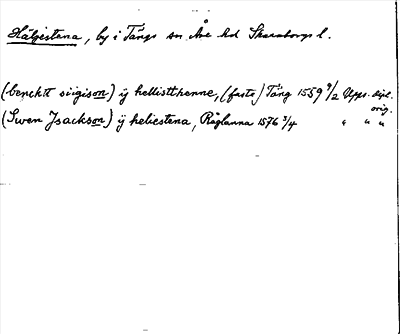 Häljestena, by i Tängs sn Åse hd Skaraborgs l.
(bencktt siigison) ÿ hellistthenne, (faste) Täng 1559 9/2 Upps. dipl.
orig.
(Swen Jsackson) ÿ heliestena, Råglanna 1576 3/4 " " "